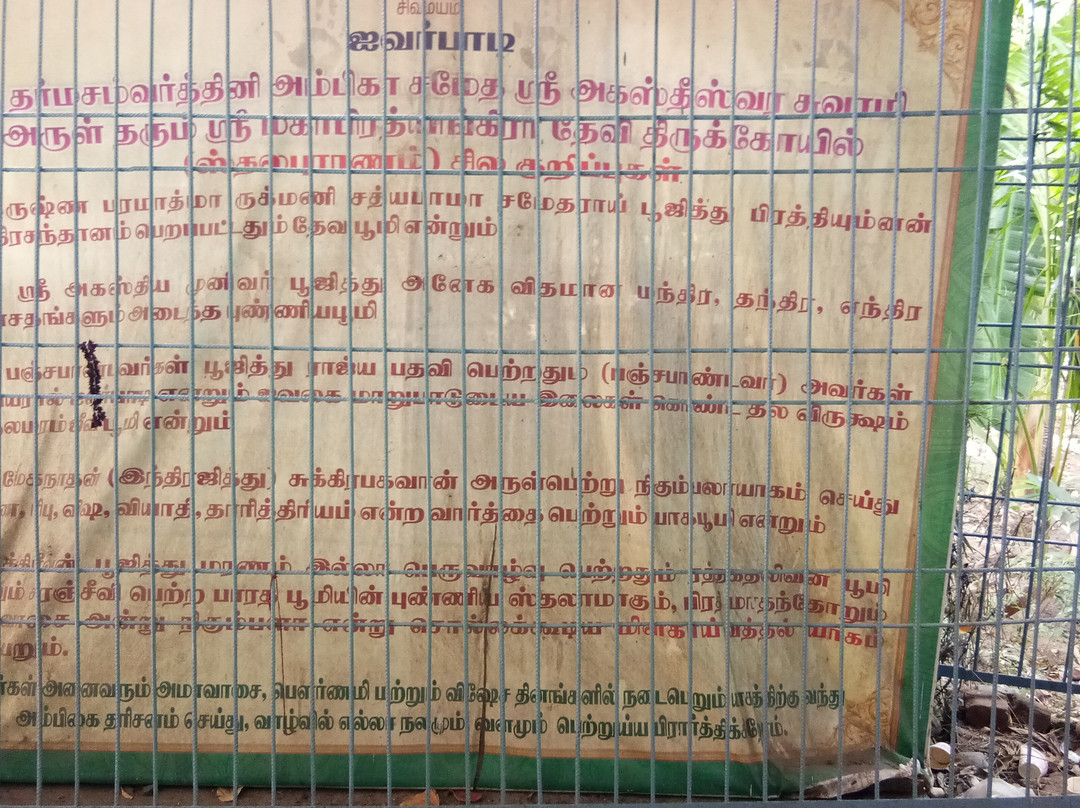 சிவமயம்
ஐவர்பாடி
தர்மசம்வர்த்தினி அம்பிகா சமேத ஸ்ரீ அகஸ்தீஸ்வர சுவாமி
அருள் தரும் ஸ்ரீ மகாபிரத்யங்கிரா தேவி திருக்கோயில்
(ஸ்தலபுராணம்) சில குறிப்புகள்
ருஷ்ண பரமாத்மா ருக்மணி சத்யபாமா சமேதராய் பூஜித்து பிரத்தியும்னன்
பெறப்பட்டதும் தேவ பூமி என்றும்
ஸ்ரீ அகஸ்திய முனிவர் பூஜித்து அனேக விதமான மந்திர, தந்திர, எந்திர
அடைந்த புண்ணியபூமி
பஞ்சபாண்டவர்கள் பூஜித்து ராஜ்ய பதவி பெற்றதும் (பஞ்சபாண்டவர்) அவர்கள்
என்றும் ஐவகை மாறுபாடுடைய இலைகள் கொண்ட தல விருக்ஷம்
பூமி என்றும்
மேகநாதன் (இந்திரஜித்து) சுக்கிரபகவான் அருள்பெற்று நிகும்பலாயாகம் செய்து
வியாதி, தாரித்திரியம் என்ற வார்த்தை பெற்றும் யாகபூமி என்றும்
பூஜித்து மரணம் இல்லா பெருவாழ்வு பெற்றதும் பூமி
சிரஞ்சீவி பெற்ற பாரத பூமியின் புண்ணிய ஸ்தலாமாகும், பிரதி மாதந்தோறும்
அன்று நிகும்பலா என்று சொல்லக்கூடிய மிளகாய்வத்தல் யாகம்
அனைவரும் அமாவாசை, பௌர்ணமி மற்றும் விஷேச தினங்களில் நடைபெறும் யாகத்திற்கு வந்து
அம்பிகை தரிசனம் செய்து, வாழ்வில் எல்லா நலமும் வளமும் பெற்றுய்ய பிரார்த்திக்கிறோம்.